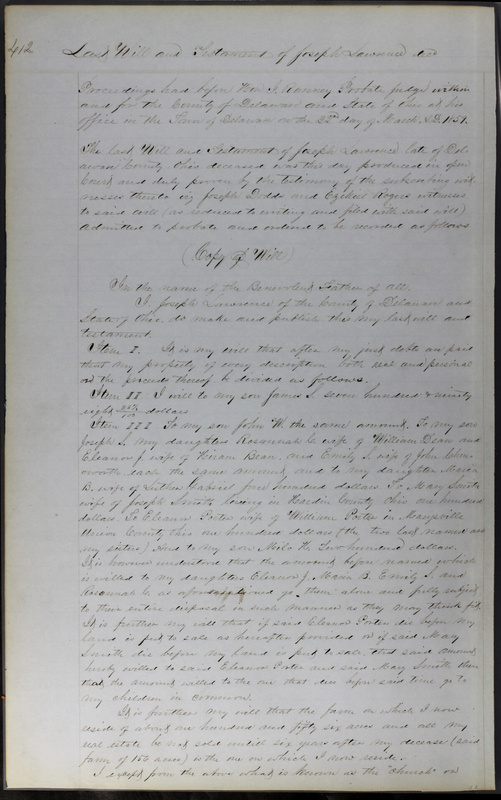 412
Last Will and Testament of Joseph Lawrence decd
Proceedings had before Hon T. Ranney Probate Judge within
and for the County of Delaware and State of Ohio at his
office in the Town of Delaware on the 22d day of March A.D. 1859.
The last Will and Testament of Joseph Lawrence late of Del
aware County Ohio deceased was this day produced in open
Court and duly proven by the testimony of the subscribing wit
nesses thereto viz Joseph Dodds and Ezekiel Rogers witnesses
to said will (as reduced to writing and filed with said will)
Admitted to probate and ordered to be recorded as follows
(Copy of Will)
In the name of the Benevolent Father of all.
I. Joseph Lawrence of the County of Delaware and
State of Ohio do make and publish this my last will and
testament.
Item I. It is my will that after my just debts are paid
that my property of every description both real and personal
or the proceeds thereof be divided as follows.
Item II I will to my son James S. seven hundred & ninety
eight dollars
Item III To my son John W. the same amount, To my son
Joseph L. my daughters Rosannah C. wife of William Dean and
Eleanor J. wife of Hiram Bean, and Emily S. wife of John
each the same amount, and to my daughter Maria
B. wife of Luther Gabriel four hundred dollars. To Mary Smith
wife of Joseph Smith living in Hardin County Ohio one hundred
dollars. To Eleanor Porter wife of William Porter in Marysville
Union County Ohio one hundred dollars (the two last named are
my sisters) And to my son Milo H. Two hundred dollars.
It is however understood that the amount before named which
is willed to my daughters Eleanor J. Maria B. Emily S. and
Rosannah C. as aforesaid and go to them alone and fully subject
to their entire disposal in such manner as they may think fit.
It is further my will that if said Elenor Porter die before my
land is put to sale as hereafter provided or if said Mary
Smith die before my land is put to sale, that said amount
hereby willed to said Eleanor Porter and said Mary Smith then
that the amount willed to the one that dies before said time go to
my children in common.
It is further my will that the farm on which I now
reside of about one hundred and fifty six acres and all my
real estate be not sold until six years after my decease (said
farm of 156 acres) is the one on which I now reside.
I except from the above what is known as the "church" or